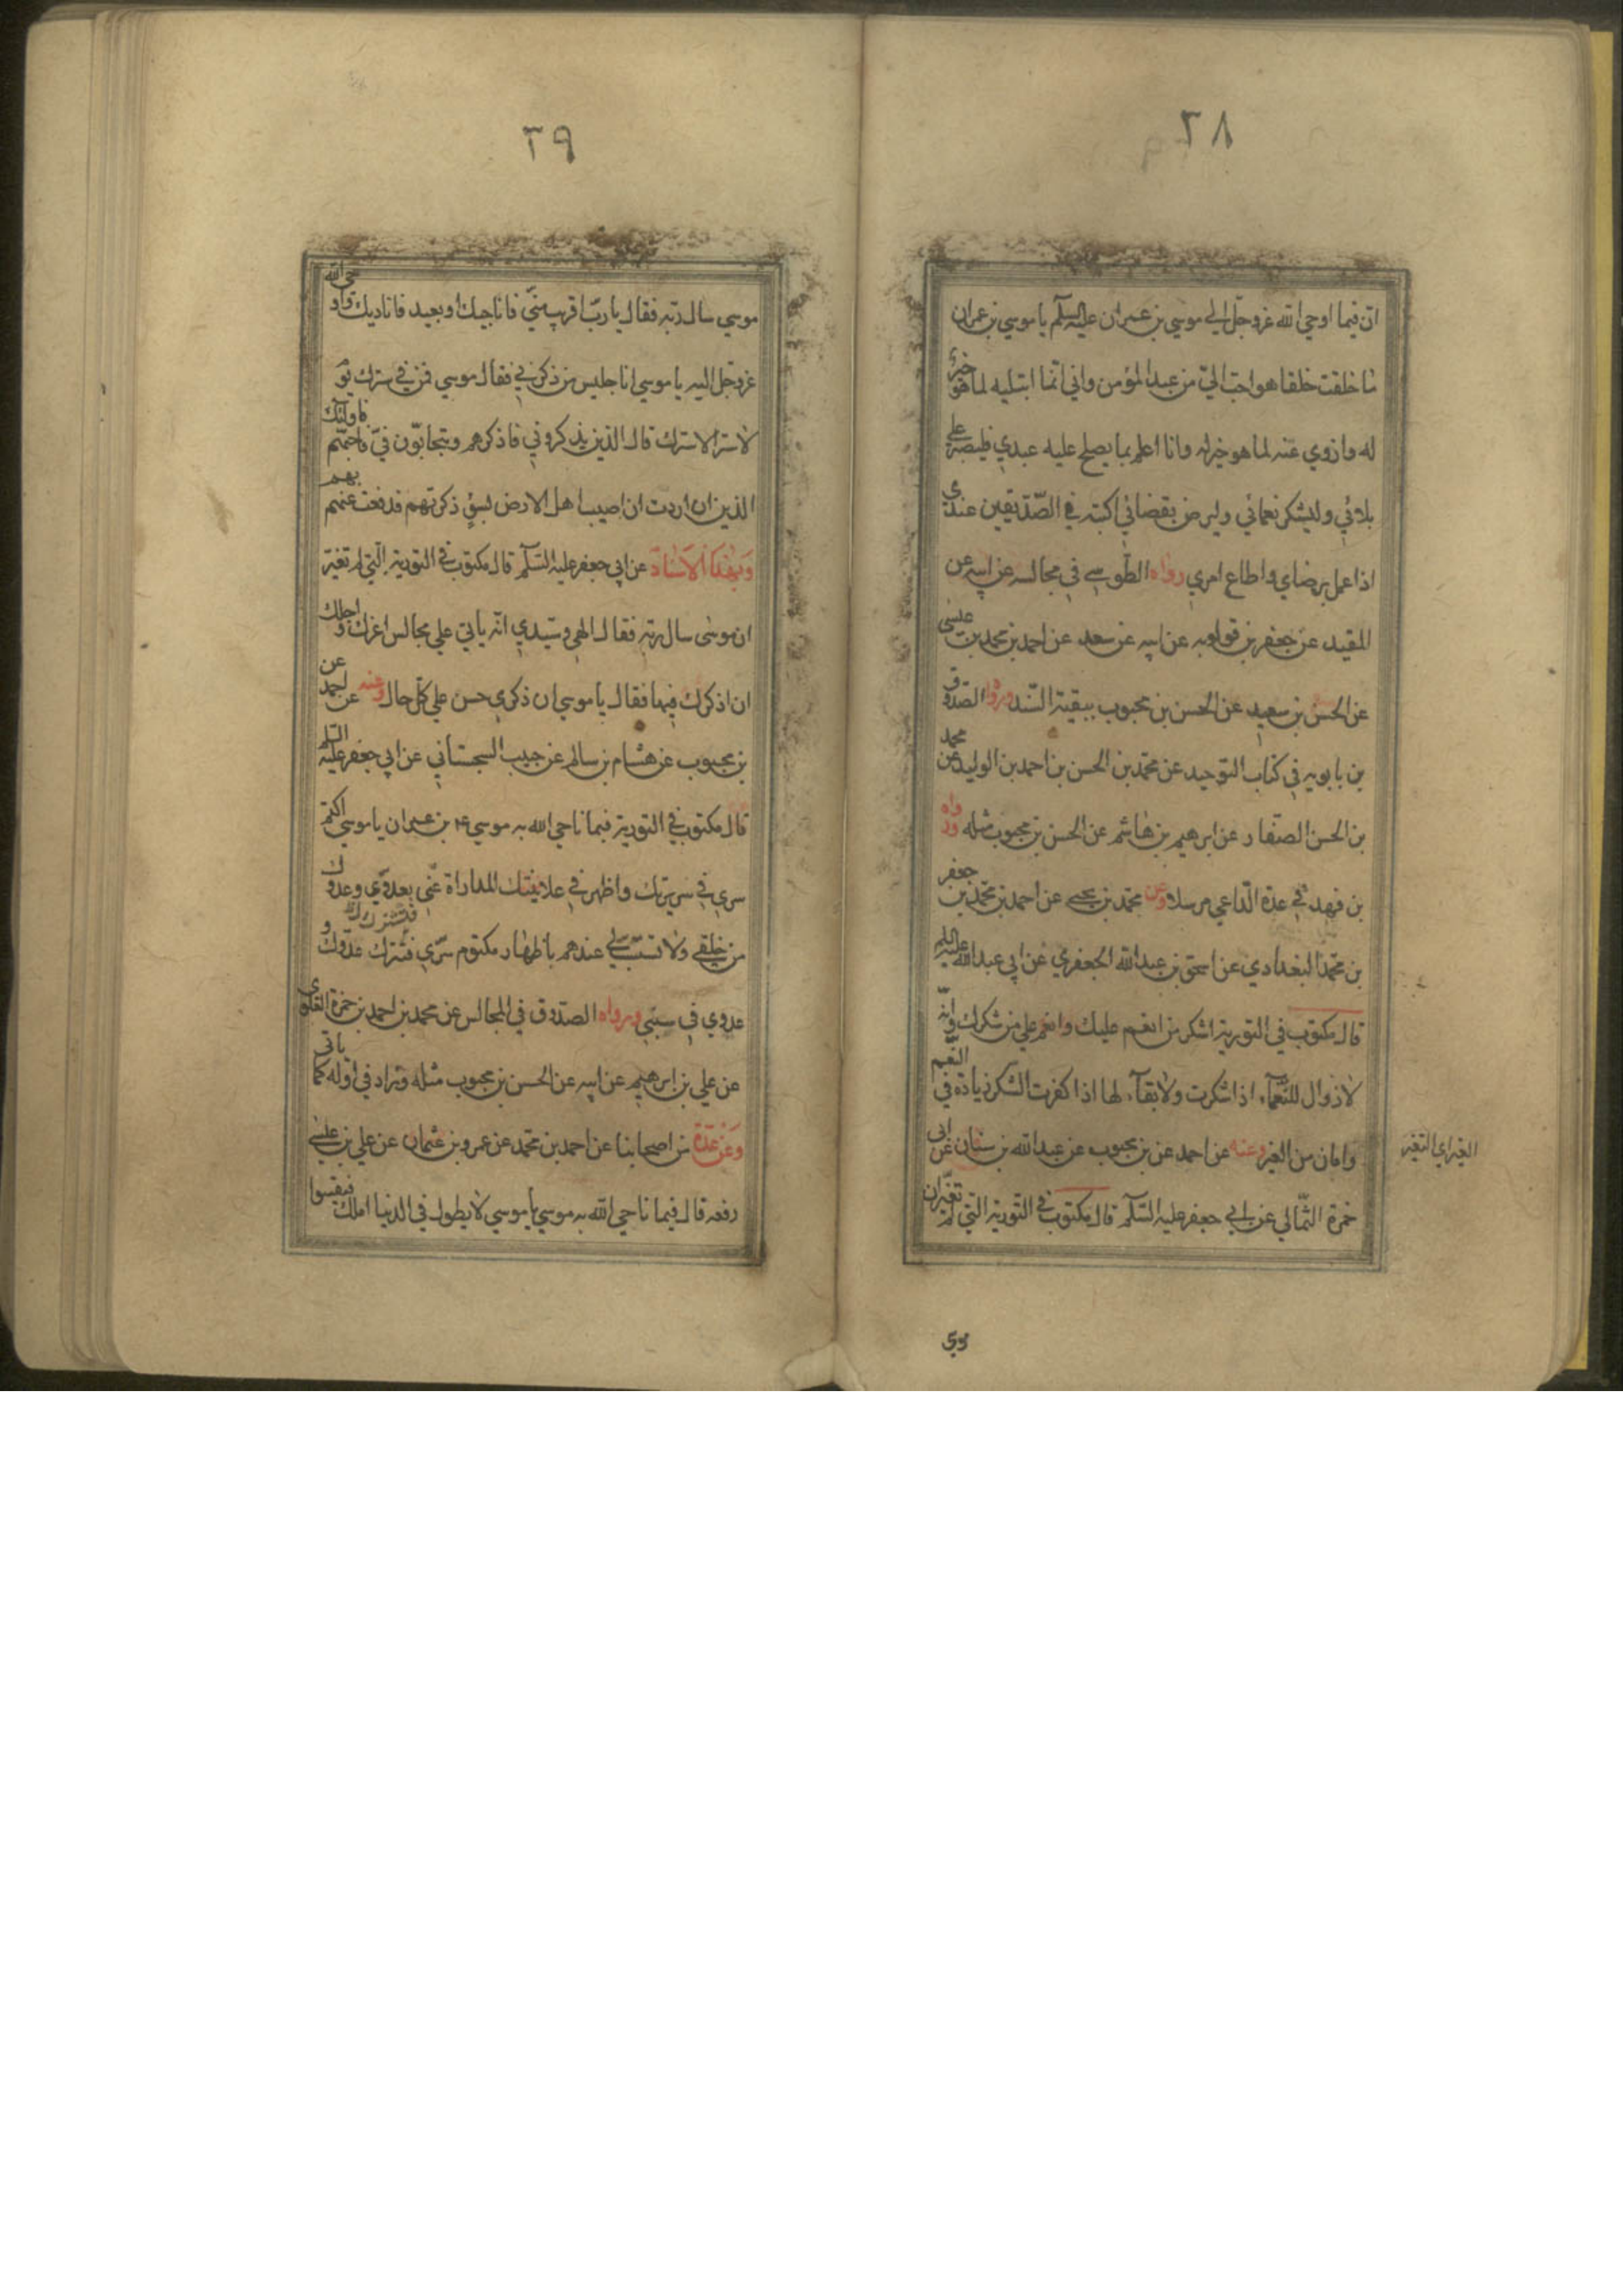 ٢٨
ان فيما اوحي الله عز وجل الي موسي بن عمران عليه السلم يا موسي بن عمران
ما خلقت خلقا هو احب الي من عبدي المؤمن واني انما ابتليه لما هو خير
له وازوي عنه لما هو خير له وانا اعلم بما يصلح عليه عبدي فليصبر علي
بلائي وليشكر نعمائي وليرض بقضائي اكتبه في الصديقين عندي
اذا عمل برضاي واطاع امري رواه الطوسي في مجالسه عن ابيه عن
المفيد عن جعفر بن قولويه عن ابيه عن سعد عن احمد بن محمد بن عيسى
عن الحسن بن سعيد عن الحسن بن محبوب ببقية السند ورواه الصدوق
بن بابويه في كتاب التوحيد عن محمد بن الحسن بن احمد بن الوليد عن محمد
بن الحسن الصفار عن ابرهيم بن هاشم عن الحسن بن محبوب مثله ورواه
بن فهد في عدة الداعي مرسلا وعن محمد بن يحيى عن احمد بن محمد بن جعفر
بن محمد البغدادي عن اسحق بن عبد الله الجعفري عن ابي عبد الله عليه السلم
قال مكتوب في التورية اشكر من انعم عليك وانعم علي من شكرك فانه
لا زوال للنعماء اذا شكرت ولا بقاء لها اذا كفرت الشكر زيادة في النعم
وامان من الغير وعنه عن احمد عن بن محبوب عن عبد الله بن سنان عن ابي
حمزة الثمالي عن ابي جعفر عليه السلم قال مكتوب في التورية التي لم تغير ان
الغير اي التغير
موسي
٢٩
موسي سال ربه فقال يا رب اقريب مني فاناجيك او بعيد فاناديك فاوحي الله
عز وجل اليه يا موسي انا جليس من ذكرني فقال موسي فمن في سترك يوم
لا ستر الا سترك قال الذين يذكروني فاذكرهم ويتحابون في فاحبهم فاولئك
الذين ان اردت ان اصيب اهل الارض بسوء ذكرتهم فدفعت عنهم بهم
وبهذا الاسناد عن ابي جعفر عليه السلم قال مكتوب في التورية التي لم تغير
ان موسى سال ربه فقال الهي وسيدي انه ياتي علي مجالس اعزك واجلك
ان اذكرك فيها فقال يا موسي ان ذكري حسن علي كل حال وعنه عن احمد عن
بن محبوب عن هشام بن سالم عن حبيب السجستاني عن ابي جعفر عليه السلم
قال مكتوب في التورية فيما ناجي الله به موسي ع بن عمران يا موسي اكتم
سري في سريرتك واظهر في علانيتك المداراة عني بعدوي وعدوك
من خلقي ولا تستسب لي عندهم باظهار مكتوم سري فتشرك عدوك و
فتشترك
عدوي في سبي ورواه الصدوق في المجالس عن محمد بن احمد بن حمزة العلوي
عن علي بن ابرهيم عن ابيه عن الحسن بن محبوب مثله وزاد في اوله كما ياتي
وعن عدة من اصحابنا عن احمد بن محمد عن عمرو بن عثمان عن علي بن عيسى
رفعه قال فيما ناجي الله به موسي يا موسي لا يطول في الدنيا املك فيقسوا